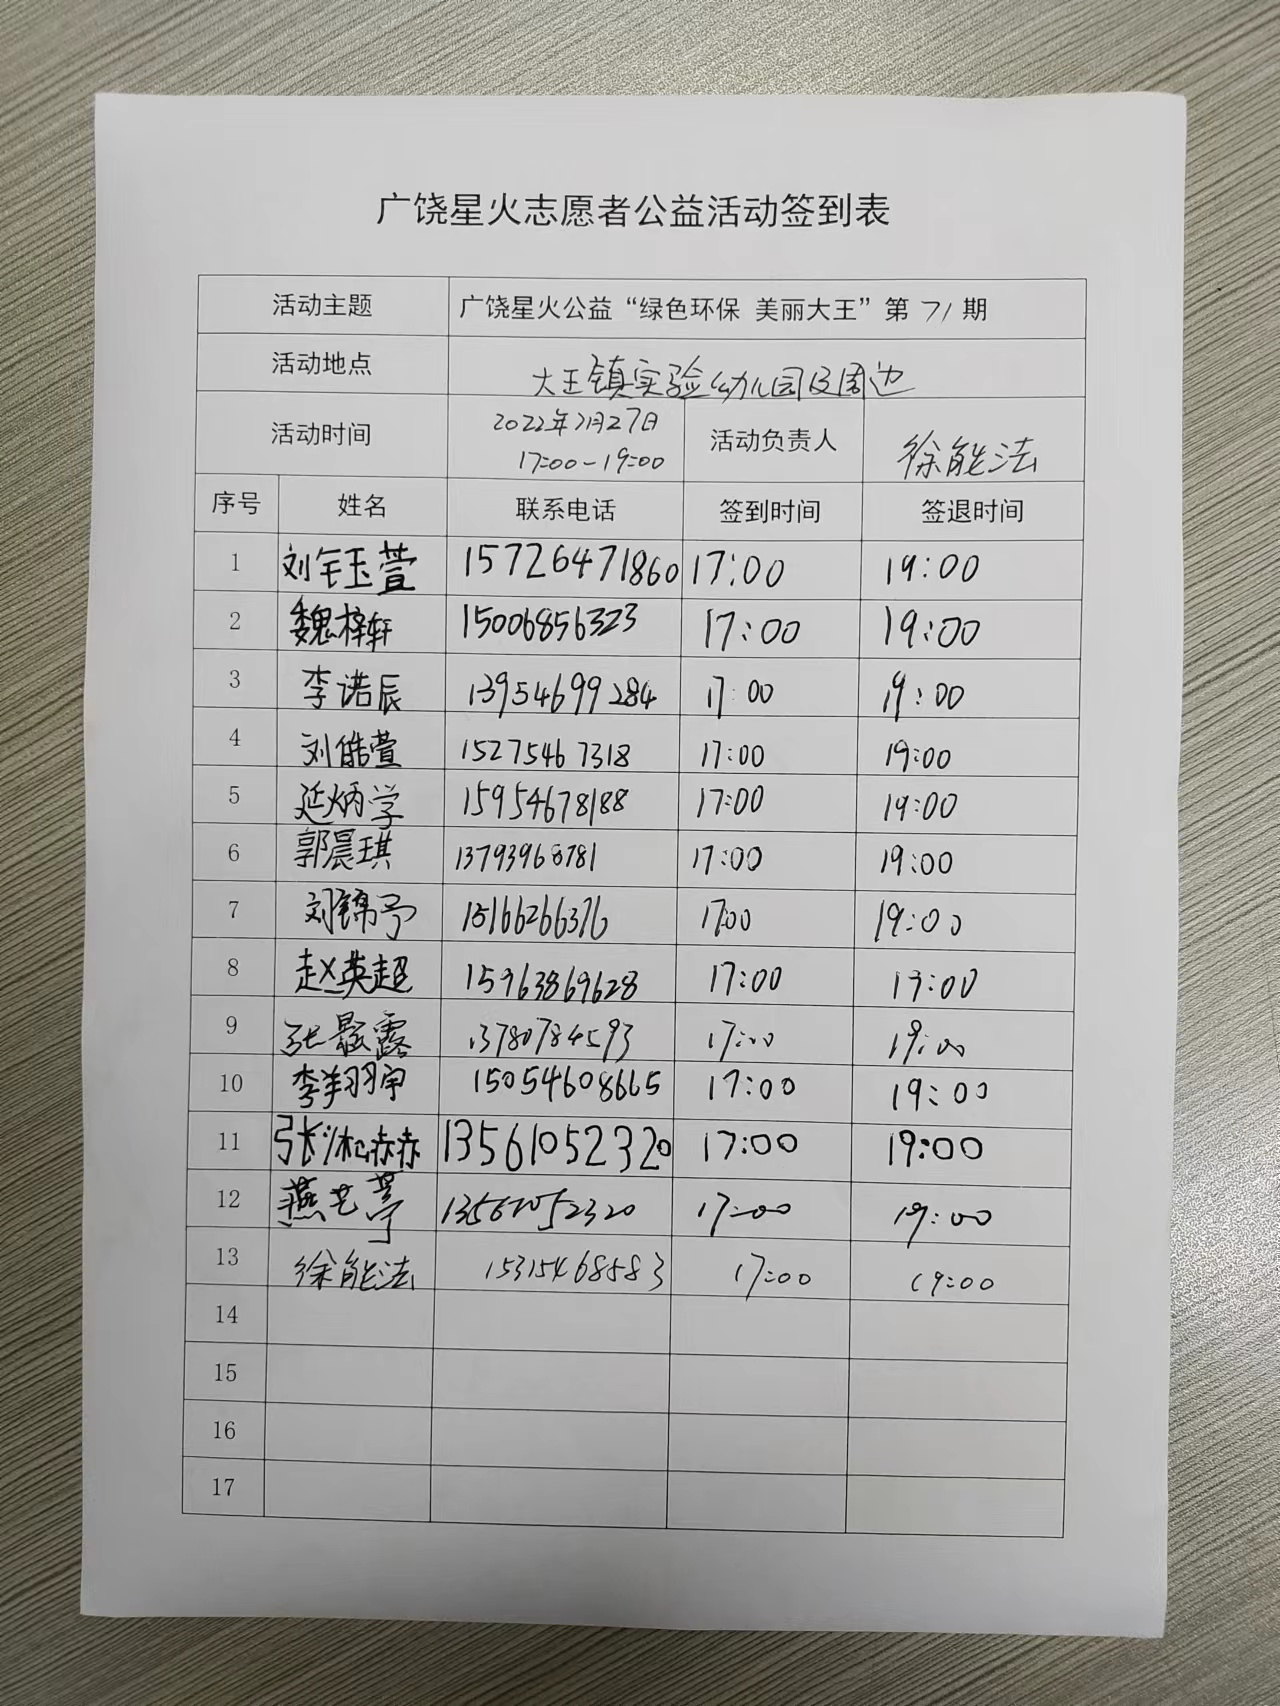 广饶星火志愿者公益活动签到表
活动主题 广饶星火公益“绿色环保 美丽大王”第 71 期
活动地点 大王镇实验幼儿园及周边
活动时间 2022年7月27日 17:00-19:00 活动负责人 徐能法
序号 姓名 联系电话 签到时间 签退时间
1 刘钰萱 15726471860 17:00 19:00
2 魏梓轩 15006856323 17:00 19:00
3 李诺辰 13954699284 17:00 19:00
4 刘皓萱 15275467318 17:00 19:00
5 延炳学 15954678188 17:00 19:00
6 郭晨琪 13793968781 17:00 19:00
7 刘锦予 15166266376 17:00 19:00
8 赵英超 15963869628 17:00 19:00
9 张 露 13780784593 17:00 19:00
10 李翔宇 15054608665 17:00 19:00
11 张 赫 13561052320 17:00 19:00
12 燕艺葶 13561052320 17:00 19:00
13 徐能法 15315468583 17:00 19:00
14
15
16
17